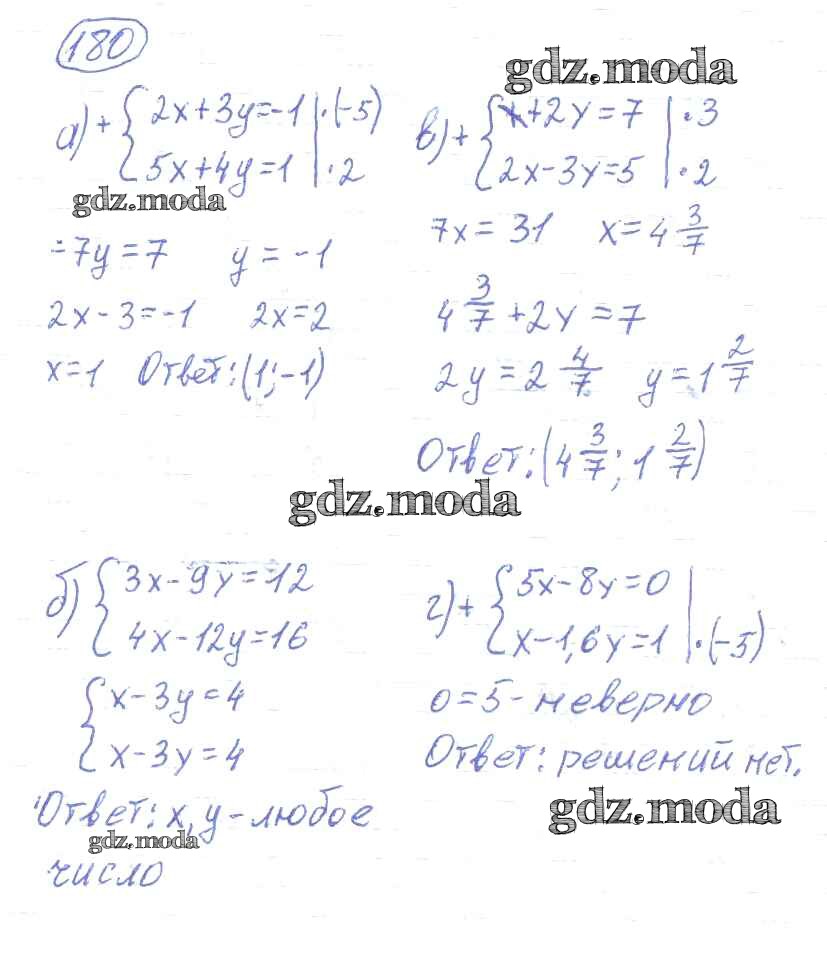 180
gdz.moda
а) + { 2x+3y=-1 | ·(-5)
5x+4y=1 | ·2
gdz.moda
-7y=7 y=-1
2x-3=-1 2x=2
x=1 Ответ: (1;-1)
в) + { x+2y=7 | ·3
2x-3y=5 | ·2
7x=31 x=4 3/7
4 3/7 +2y=7
2y=2 4/7 y=1 2/7
Ответ: (4 3/7; 1 2/7)
gdz.moda
б) { 3x-9y=12
4x-12y=16
{ x-3y=4
x-3y=4
Ответ: x,y-любое
gdz.moda
число
г) + { 5x-8y=0
x-1,6y=1 | ·(-5)
0=5-неверно
Ответ: решений нет.
gdz.moda